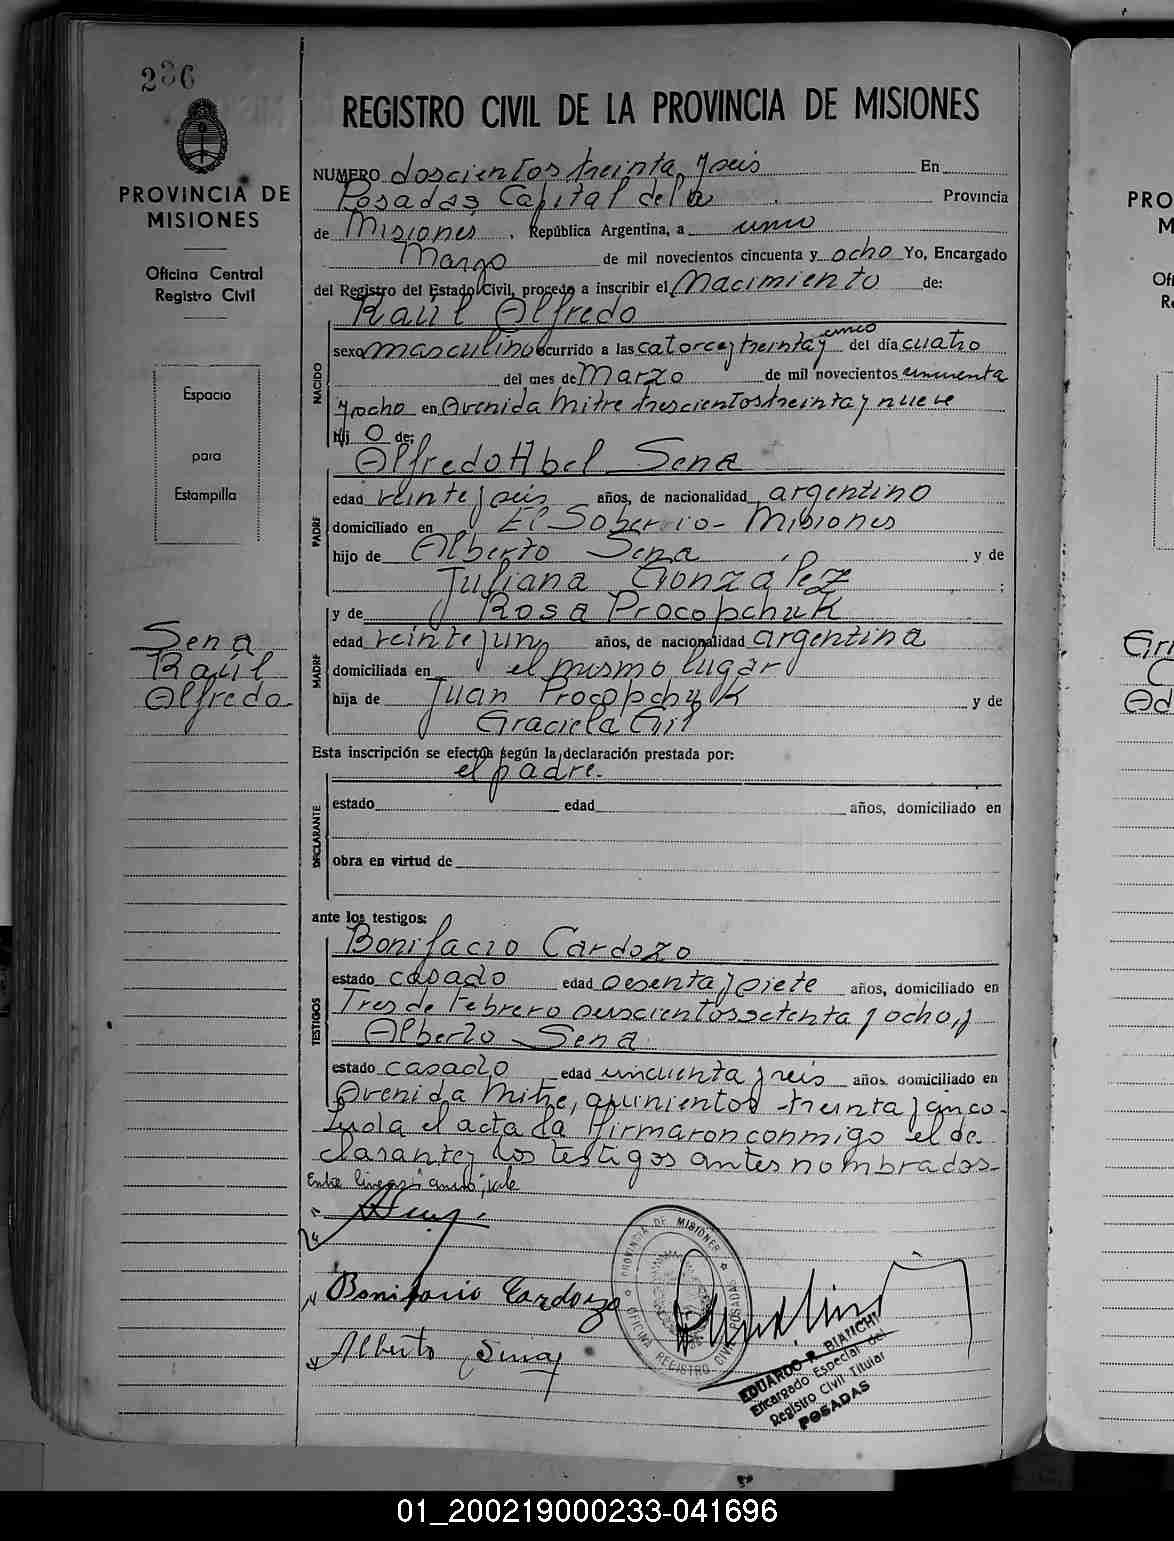 236
PROVINCIA DE
MISIONES
Oficina Central
Registro Civil
Espacio
para
Estampilla
Sena
Raúl
Alfredo
REGISTRO CIVIL DE LA PROVINCIA DE MISIONES
NUMERO doscientos treinta y seis En
Posadas, Capital de la Provincia
de Misiones, República Argentina, a
Marzo de mil novecientos cincuenta y ocho Yo, Encargado
del Registro del Estado Civil, procedo a inscribir el Nacimiento de:
Raúl Alfredo
NACIDO
cinco
sexo masculino ocurrido a las catorce y treinta y del día cuatro
del mes de Marzo de mil novecientos cincuenta
y ocho en Avenida Mitre trescientos treinta y nueve
hij o de:
Alfredo Abel Sena
PADRE
edad veinte y seis años, de nacionalidad argentino
domiciliado en El Soberbio - Misiones
hijo de Alberto Sena y de
Juliana González ;
y de Rosa Procopchuk
MADRE
edad veinte y un años, de nacionalidad argentina
domiciliada en el mismo lugar
hija de Juan Procopchuk y de
Graciela Gil
Esta inscripción se efectúa según la declaración prestada por:
el padre.
DECLARANTE
estado edad años, domiciliado en
obra en virtud de
ante los testigos:
Bonifacio Cardozo
TESTIGOS
estado casado edad sesenta y siete años, domiciliado en
Tres de Febrero seiscientos setenta y ocho, y
Alberto Sena
estado casado edad cincuenta y seis años, domiciliado en
Avenida Mitre, quinientos treinta y cinco.
Leída el acta la firmaron conmigo el de-
clarante y los testigos antes nombrados-
Entre líneas: cinco; vale
Bonifacio Cardozo
Alberto Sena
PROVINCIA DE MISIONES
OFICINA REGISTRO CIVIL POSADAS
EDUARDO R. BIANCHI
Encargado Especial del
Registro Civil Titular
POSADAS
PRO
M
Ofi
Re
Ad
01_200219000233-041696